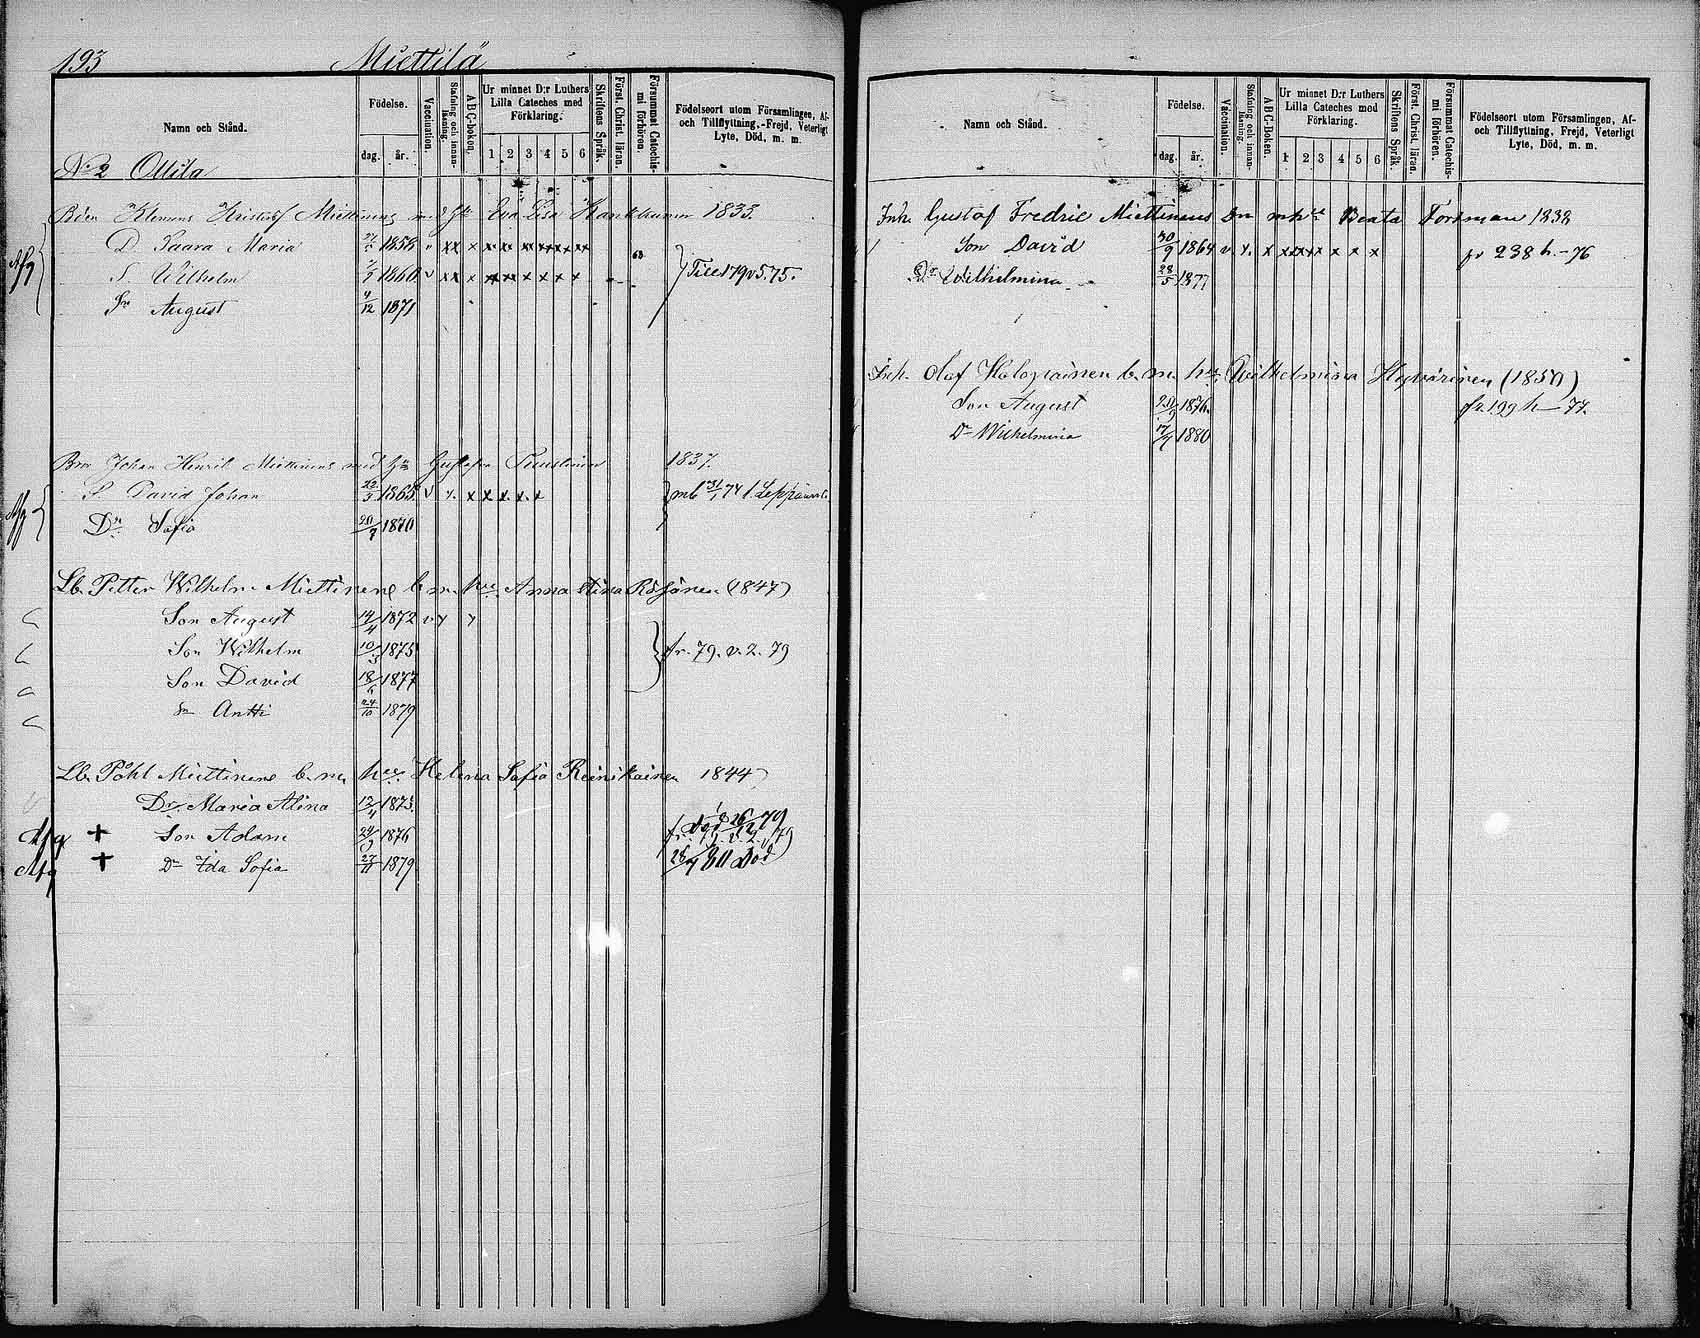 193 Miettilä
Namn och Stånd.
Födelse.
dag. år.
Vaccination.
Stafning och innanläsning.
ABC-bokon.
Ur minnet D:r Luthers Lilla Cateches med Förklaring.
1 2 3 4 5 6
Skriftens Språk.
Först. Christ. läran.
Försummat Catechismi förhören.
Födelseort utom Församlingen, Af- och Tillflyttning, Frejd, Veterligt Lyte, Död, m. m.
No 2 Ottila
Klemens Kristof Miettinens med Eva Lisa 1833.
D. Saara Maria 1858
S. Wilhelm 1860 v Till 179 v 5. 75.
Sn August 4/12 1871
Johan Henrik Miettinens med Gustafva 1837.
S. David Johan 22/3 1865 v
Dr Sofia 1870
Lb. Petter Wilhelm Miettinens b. m. hu. Anna Stina (1847)
Son August 14/4 1872 v
Son Wilhelm 10/3 1875 fr. 79. v. 2. 79
Son David 18/6 1877
Sn Antti 24/10 1879
Lb. Påhl Miettinens b. m. hu. Helena Sofia Reinikainen 1844
Dr. Maria Alina 13/4 1873.
+ Son Adam 1876 Död 26/12 79
+ Dr Ida Sofia 27/11 1879 80 Död
Namn och Stånd.
Födelse.
dag. år.
Vaccination.
Stafning och innanläsning.
ABC-Boken.
Ur minnet D:r Luthers Lilla Cateches med Förklaring.
1 2 3 4 5 6
Skriftens Språk.
Först. Christ. läran.
Försummat Catechismi förhören.
Födelseort utom Församlingen, Af- och Tillflyttning, Frejd, Veterligt Lyte, Död, m. m.
Inh. Gustaf Fredric Miettinens Beata Forsman 1838
Son David 30/9 1864 v. fr 238 h. - 76
Dr Wilhelmina 28/5 1877
Inh. Olof Holopainen b. m. hu. Wilhelmina (1850)
Son August 1876. fr. 199 h - 77.
Dr Wilhelmina 1880